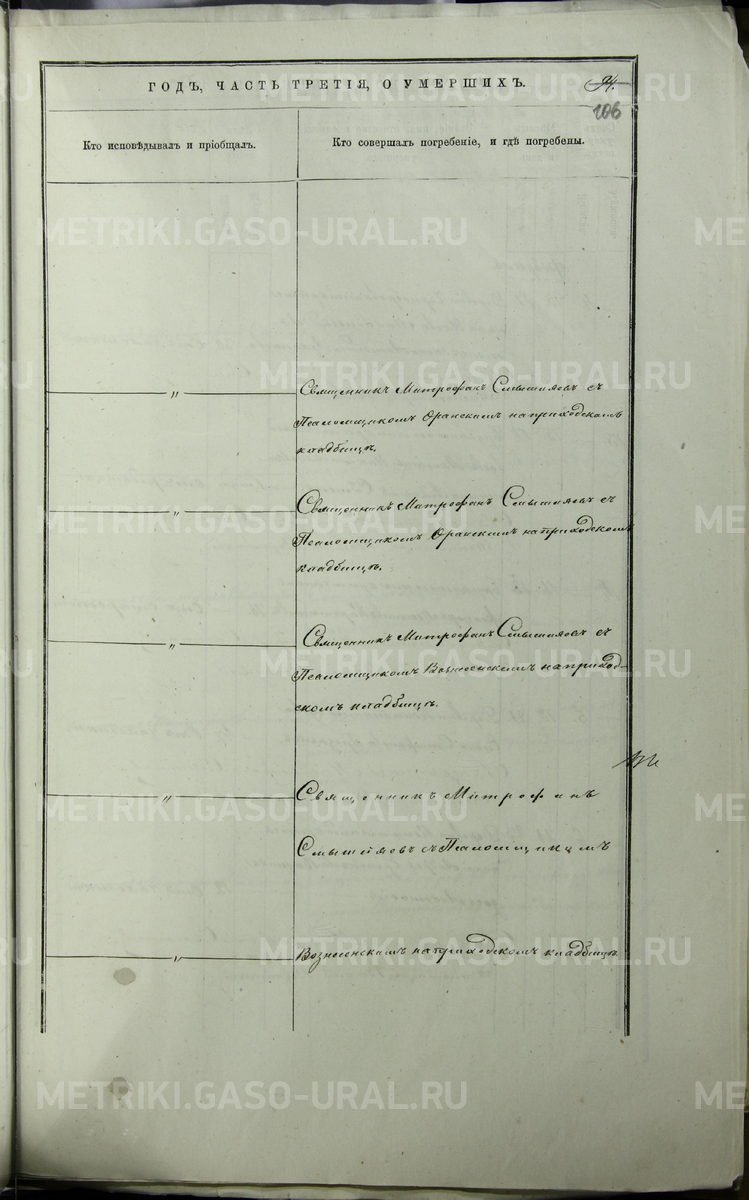 ГОДЪ, ЧАСТЬ ТРЕТІЯ, О УМЕРШИХЪ.
106
Кто исповѣдывалъ и пріобщалъ.
Кто совершалъ погребеніе, и гдѣ погребены.
"
Священникъ Митрофанъ Смышляевъ съ
Псаломщикомъ Оранскимъ на приходскомъ
кладбищѣ.
"
Священникъ Митрофанъ Смышляевъ съ
Псаломщикомъ Оранскимъ на приходскомъ
кладбищѣ.
"
Священникъ Митрофанъ Смышляевъ съ
Псаломщикомъ Вознесенскимъ на приход-
скомъ кладбищѣ.
"
Священникъ Митрофанъ
Смышляевъ съ Псаломщикомъ
"
Вознесенскимъ на приходскомъ кладбищѣ.
METRIKI.GASO-URAL.RU